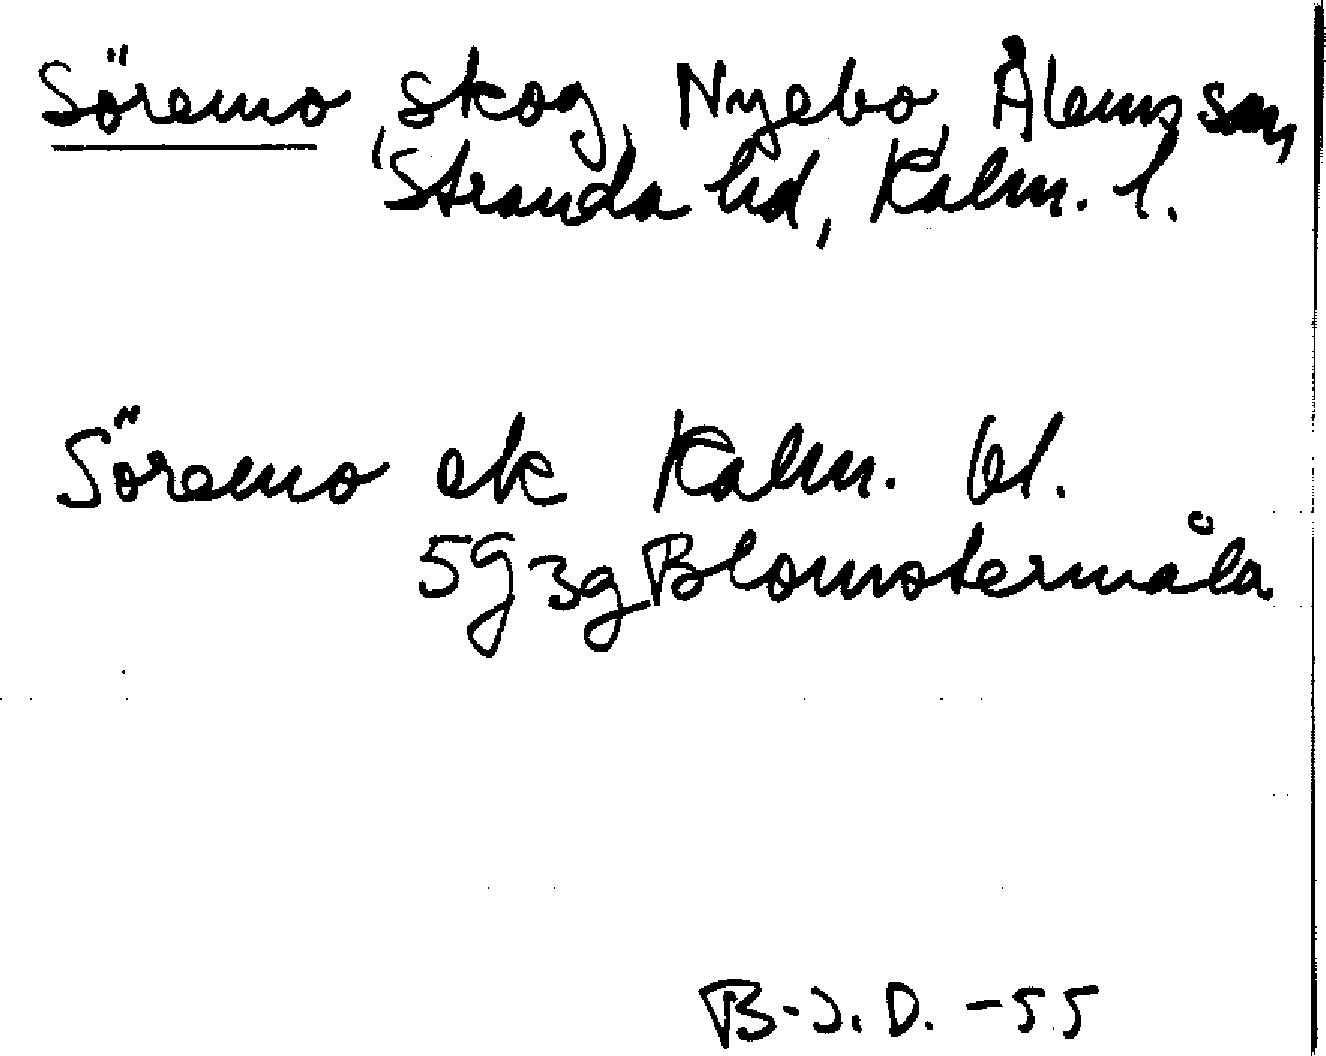 Söremo, skog, Nyebo, Ålems sn,
Stranda hd, Kalm. l.
Söremo ek Kalm. bl.
5G 3g Blomstermåla
B-J.D. -55